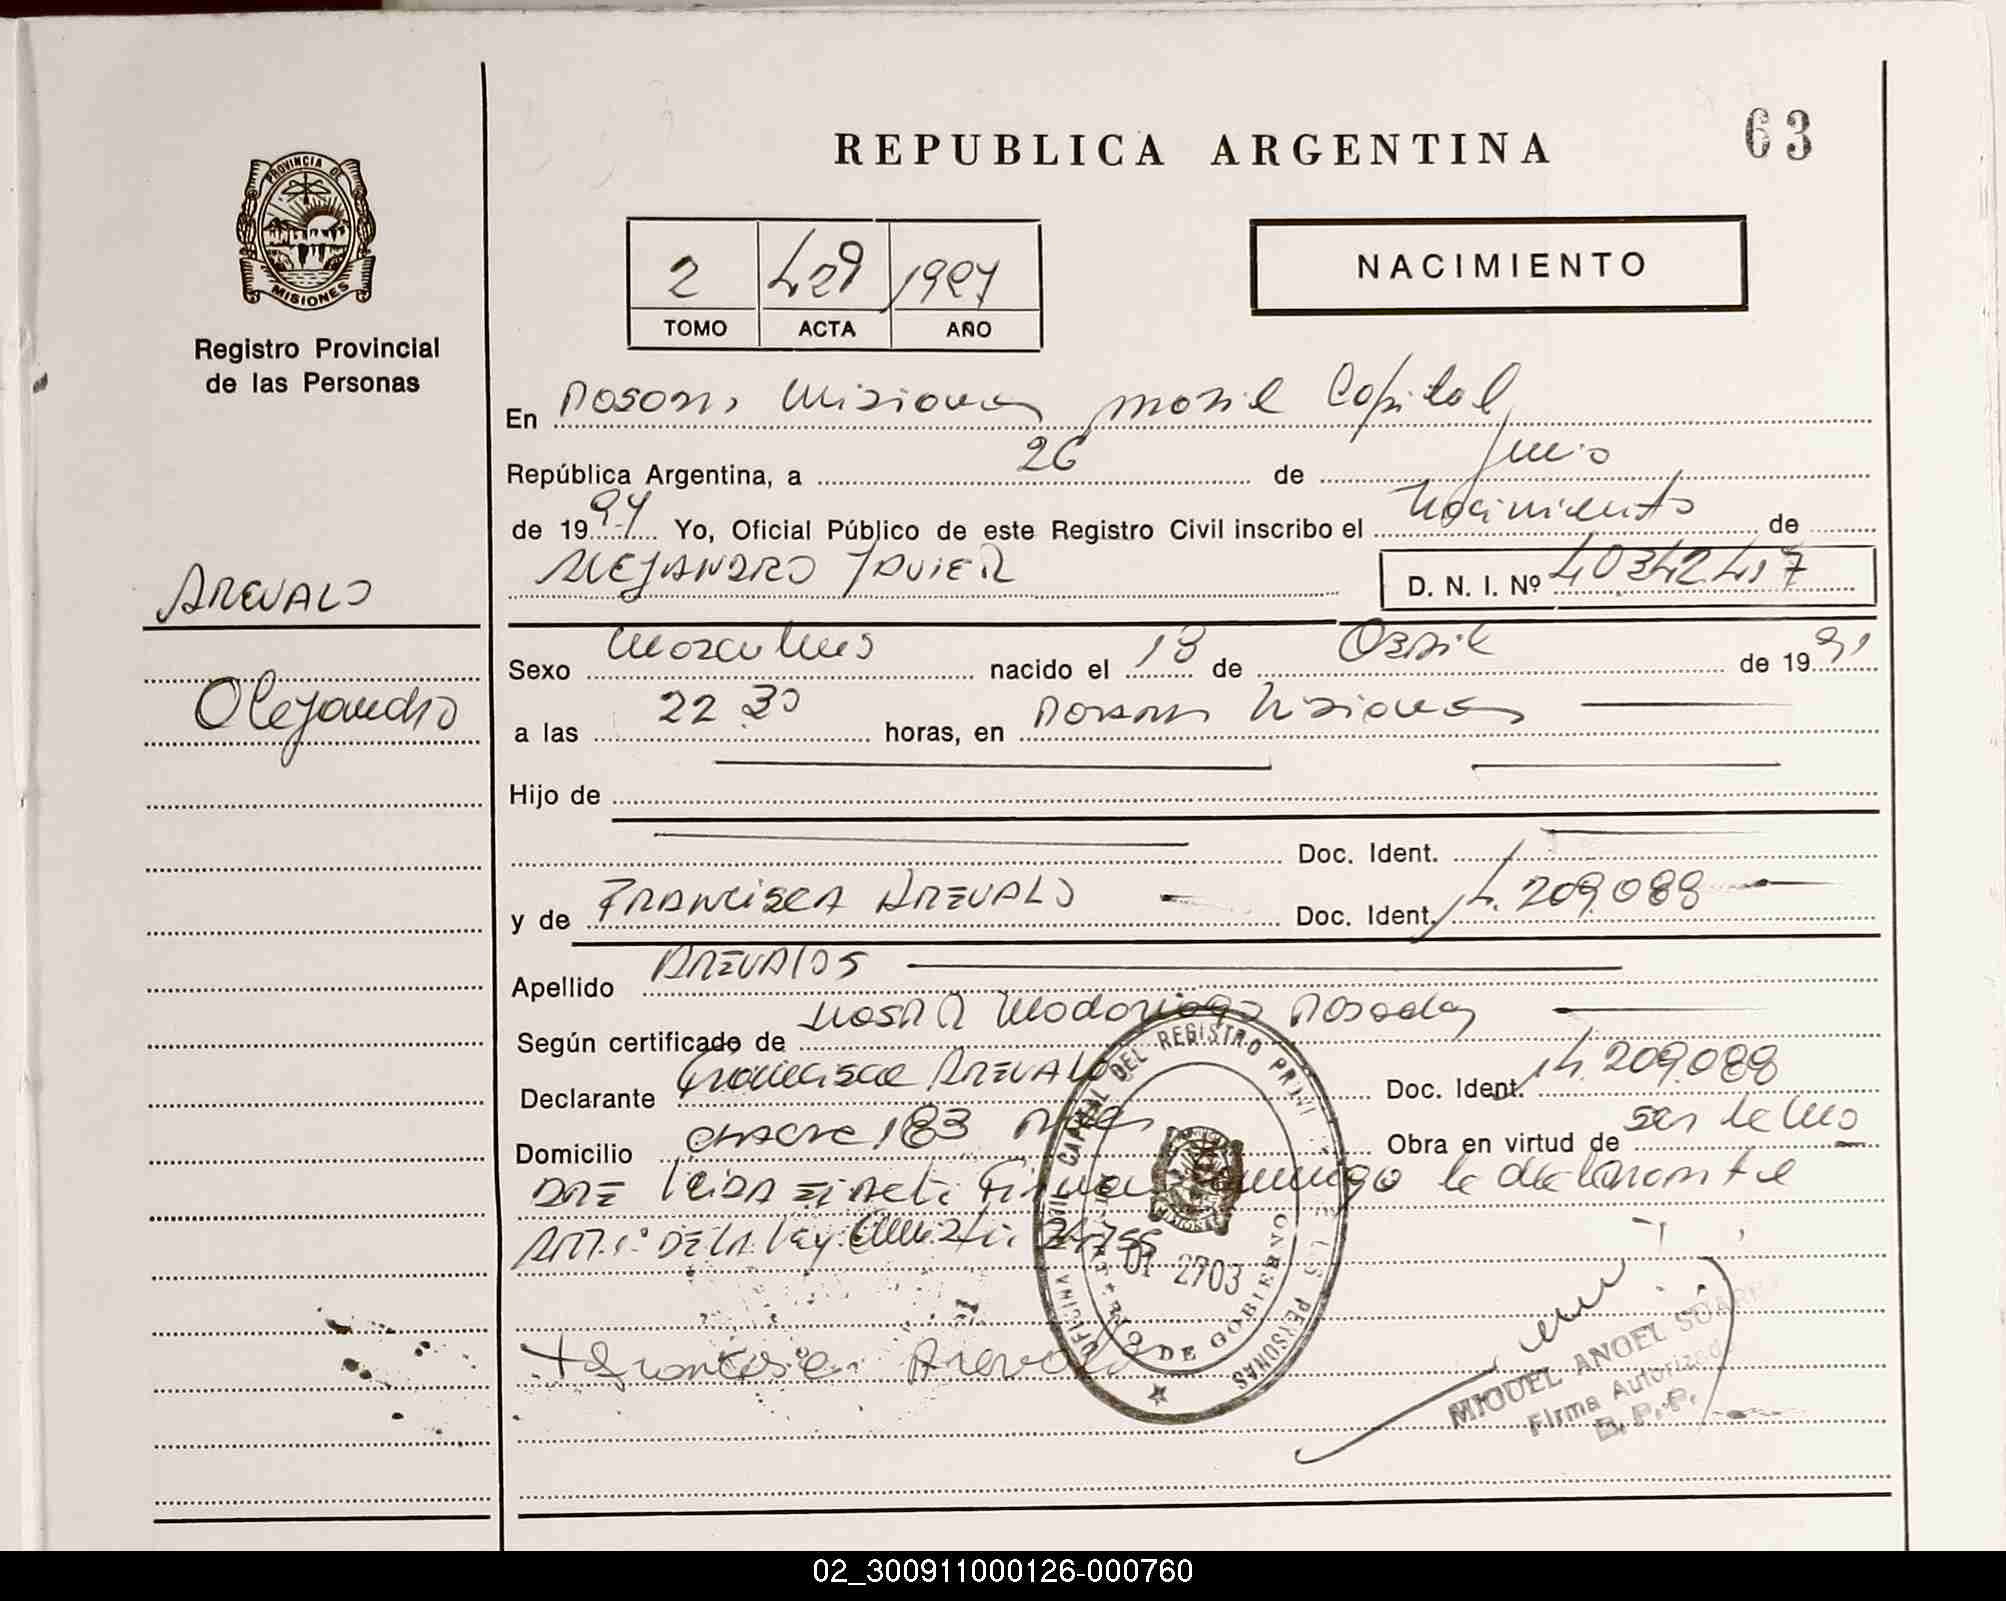 REPUBLICA ARGENTINA
63
PROVINCIA DE
MISIONES
Registro Provincial
de las Personas
2 429 1997
TOMO ACTA AÑO
NACIMIENTO
En Misiones movil Capital
República Argentina, a 26 de
de 1997 Yo, Oficial Público de este Registro Civil inscribo el Nacimiento de
ALEJANDRO JAVIER
D. N. I. Nº 40342417
AREVALO
Alejandro
Sexo Masculino nacido el 18 de Abril de 1991
a las 22 30 horas, en Posadas Misiones
Hijo de
Doc. Ident.
y de FRANCISCA AREVALO Doc. Ident. 14.209.088
Apellido AREVALOS
Según certificado de Madariaga Posadas
Declarante Francisca AREVALO Doc. Ident. 14.209.088
Domicilio chacra 183 Obra en virtud de ser la
DRE leida el acta firma conmigo la declarante
ART. 1º DE LA Ley
OFICINA CAPITAL DEL REGISTRO PERSONAS
DE GOBIERNO
01 2703
+ Francisca Arevalo
MIGUEL ANGEL
Firma Autorizada
02_300911000126-000760